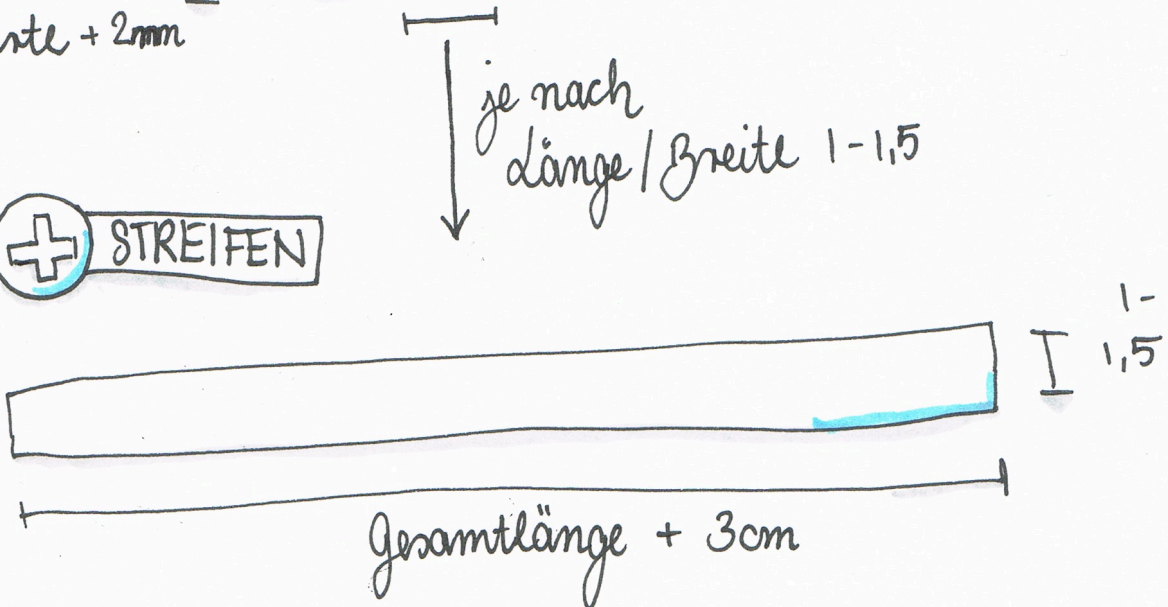 + 2mm
je nach
Länge/Breite 1-1,5
STREIFEN
1-
1,5
Gesamtlänge + 3cm